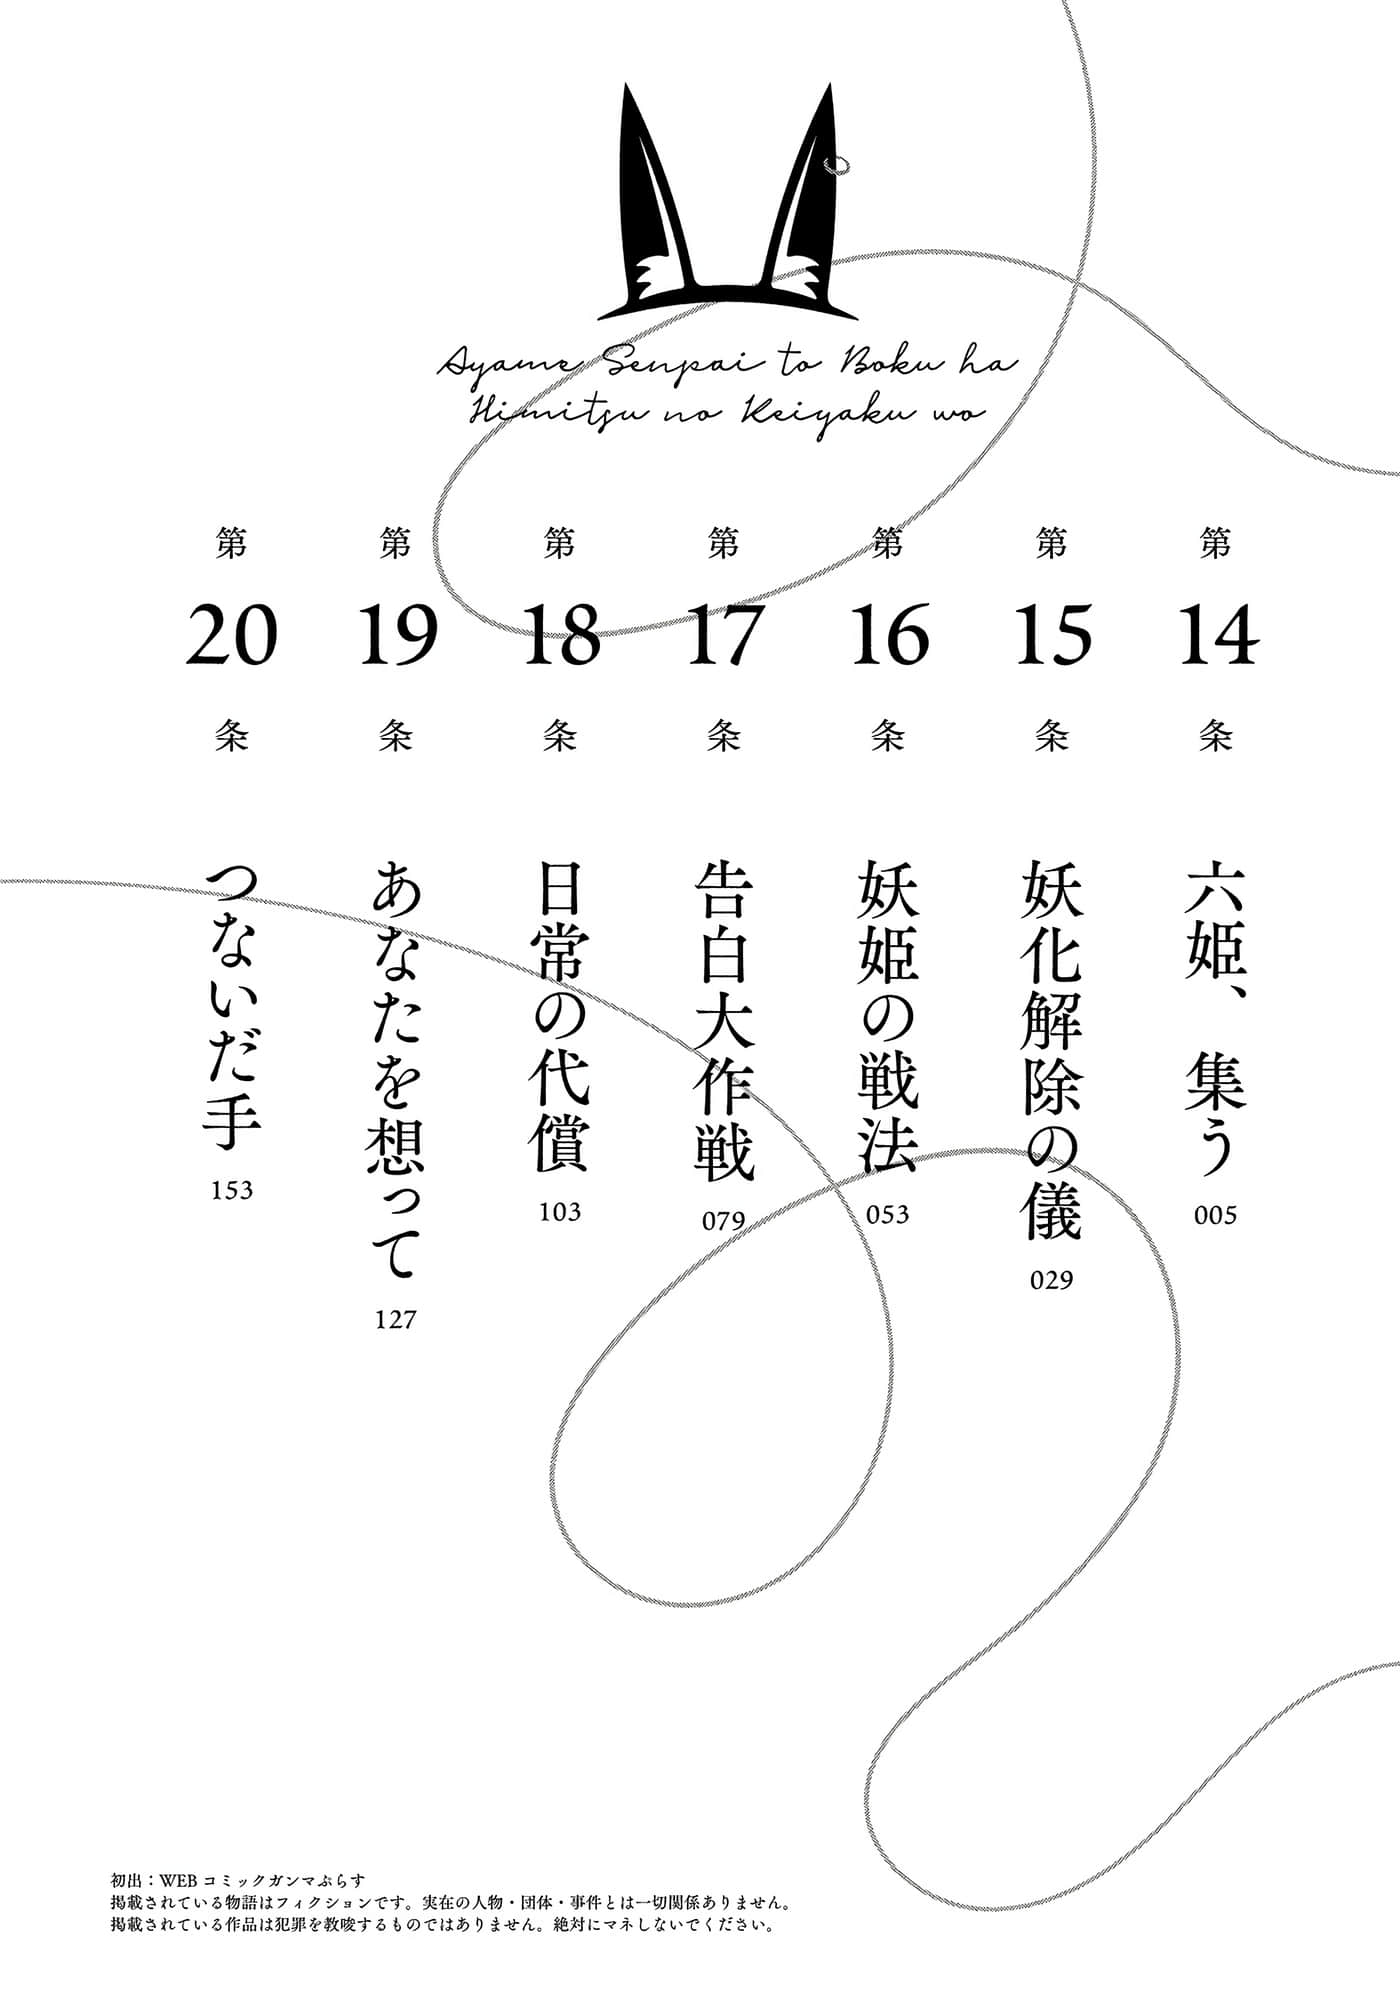 Ayame Senpai to Boku ha
Himitsu no Keiyaku wo
第14条 六姫、 集う 005
第15条 妖化解除の儀 029
第16条 妖姫の戦法 053
第17条 告白大作戦 079
第18条 日常の代償 103
第19条 あなたを想って 127
第20条 つないだ手 153
初出：WEB コミックガンマぷらす
掲載されている物語はフィクションです。実在の人物・団体・事件とは一切関係ありません。
掲載されている作品は犯罪を教唆するものではありません。絶対にマネしないでください。